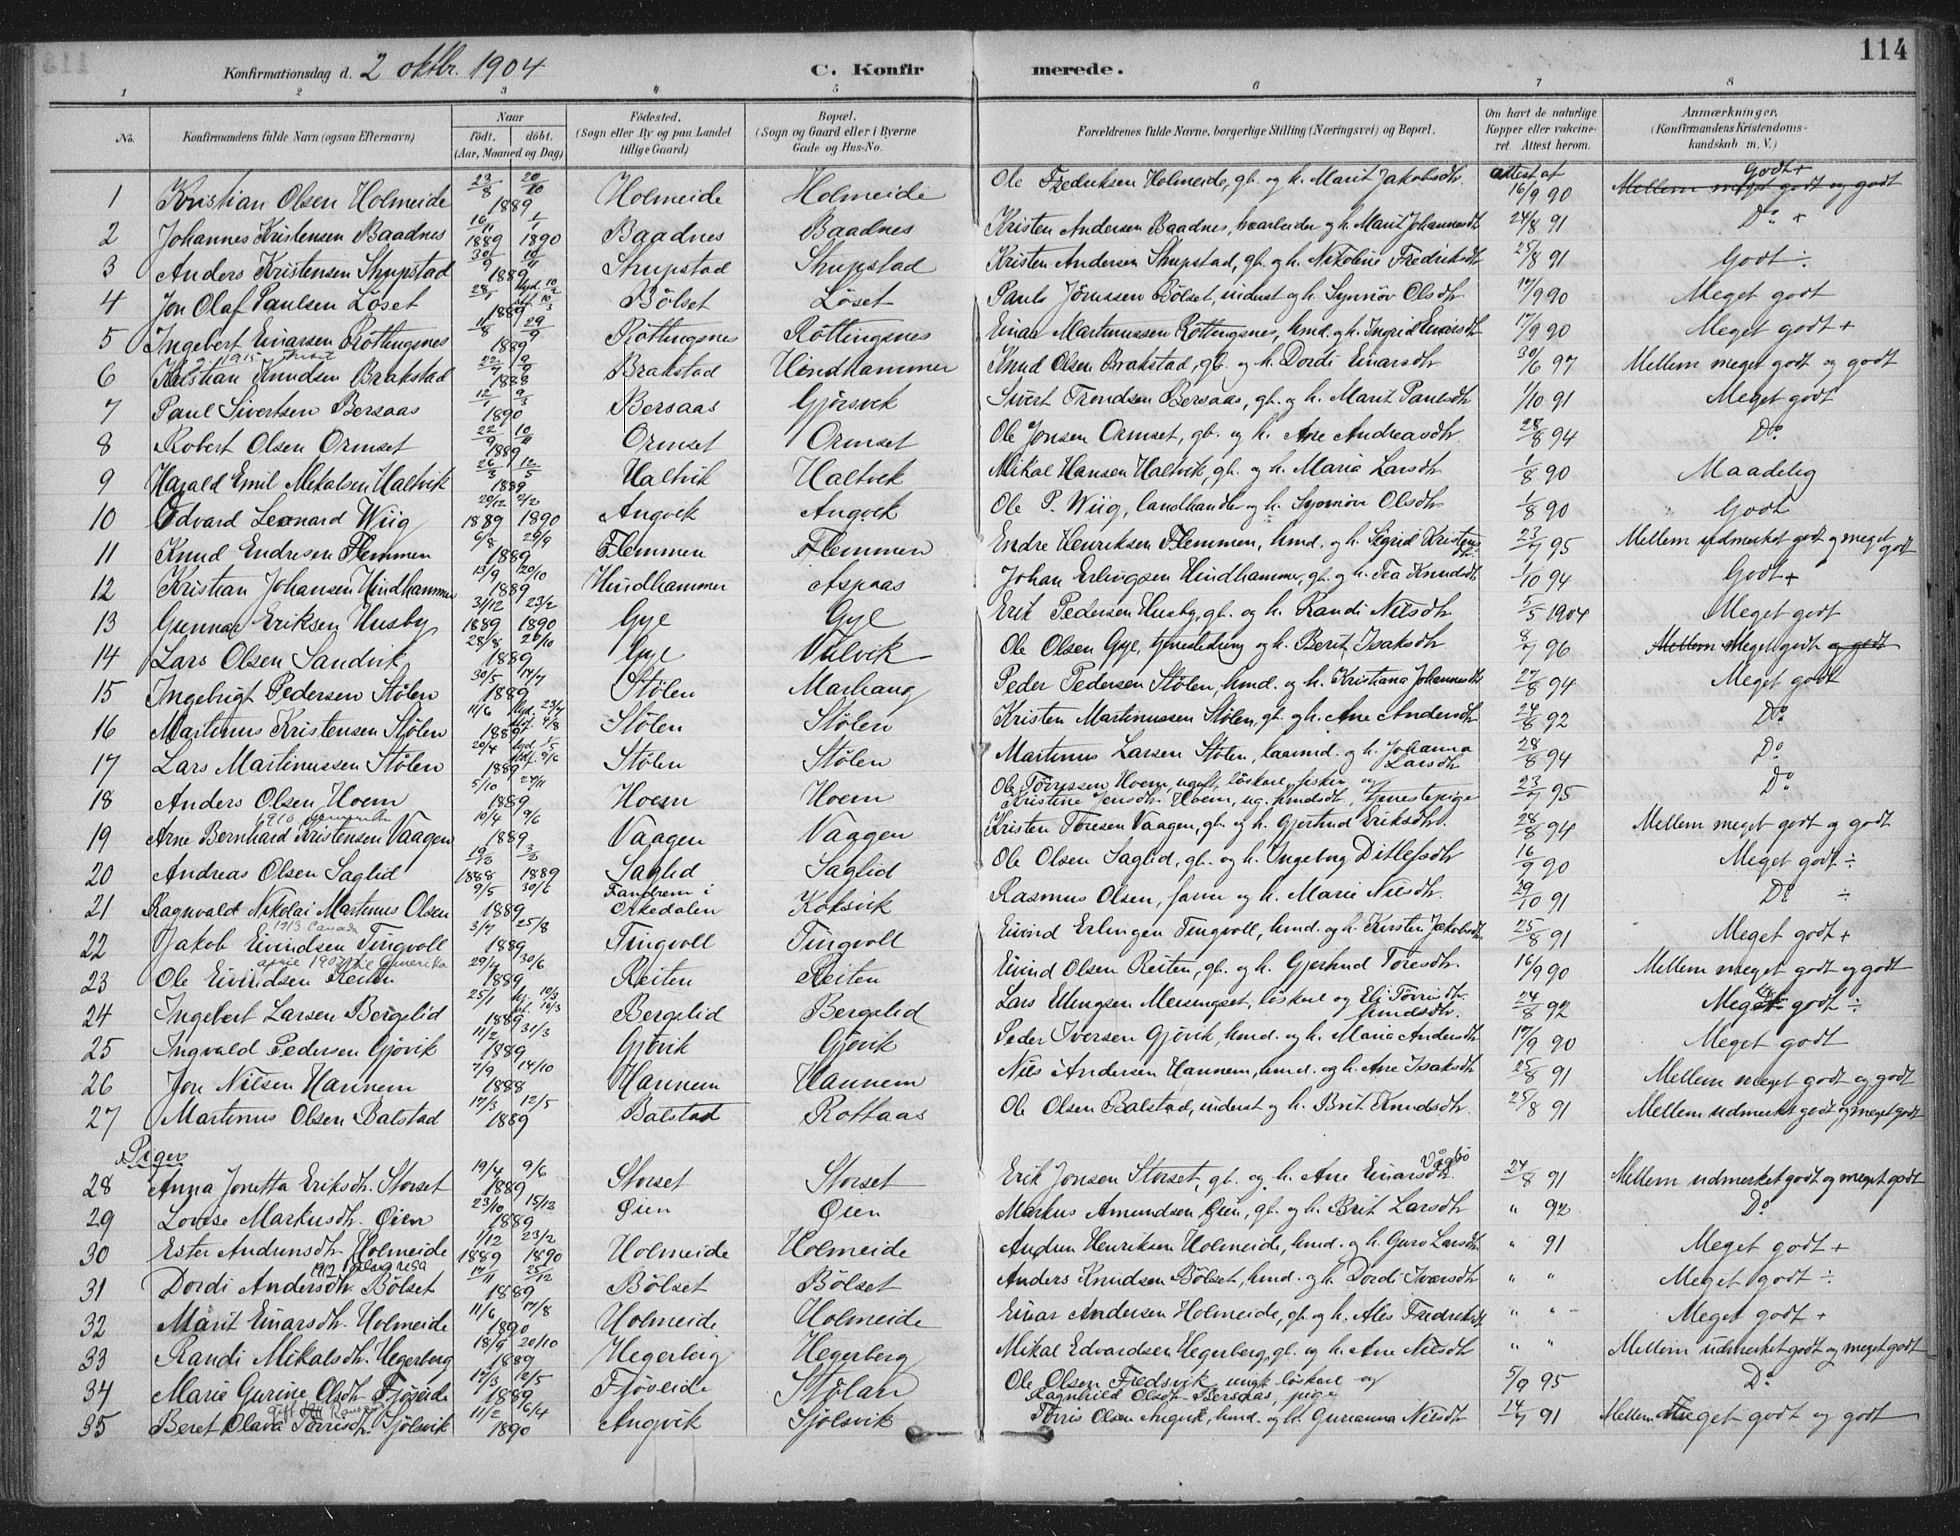 114
Konfirmationsdag d. 2 oktbr. 1904 C. Konfirmerede.
1 2 3 4 5 6 7 8
No. Konfirmandens fulde Navn (ogsaa Efternavn) Naar født. døbt. (Aar, Maaned og Dag) Fødested. (Sogn eller By og paa Landet tillige Gaard) Bopæl. (Sogn og Gaard eller i Byerne Gade og Hus-No. Forældrenes fulde Navne, borgerlige Stilling (Næringsvei) og Bopæl. Om havt de naturlige Kopper eller vakcineret. Attest herom. Anmærkninger, (Konfirmandens Kristendomskundskab m. V.)
1 Kristian Olsen Holmeide 23/8 20/10 1889 Holmeide Holmeide Ole Fredriksen Holmeide, gb. og h. Marit Jakobsdtr. attest af 16/9 90 Mellem meget godt og godt Godt +
2 Johannes Kristensen Baadnes 16/11 1889 1/1 1890 Baadnes Baadnes Kristen Andersen Baadnes, og h. Marit Johannesdtr 24/8 91 Do +
3 Anders Kristensen Strupstad 30/9 10/11 1889 Strupstad Strupstad Kristen Andersen Strupstad, gb. og h. Nikoline Fredriksdtr 25/8 91 Godt ÷
4 Jon Olaf Paulsen Löset 28/1 hjd. 10/2 1889 Bölset Löset Paul Jönssen Bölset, inderst og h. Synnöv Olsdtr 17/9 90 Meget godt
5 Ingebert Einarsen Röttingsnes 11/8 29/9 1889 Röttingsnes Röttingsnes Einar Martinussen Röttingsnes, hmd. og h. Ingrid Einarsdtr 17/9 90 Meget godt +
6 Kristian Knudsen Brakstad 22/7 9/9 1888 Brakstad Hindhammer Knud Olsen Brakstad, gb. og h. Dordi Einarsdtr 30/6 97 Mellem meget godt og godt
7 Paul Sivertsen Bersaas 12/1 9/3 1890 Bersaas Gjörsvik Sivert Trondsen Bersaas, gb. og h. Marit Paulsdtr 1/10 91 Meget godt
8 Robert Olsen Ormset 22/9 10/11 1889 Ormset Ormset Ole Jonsen Ormset, gb. og h. Ane Andreasdtr. 28/8 94 Do
9 Harald Emil Mekalsen Haltvik 26/3 12/5 1889 Haltvik Haltvik Mikal Hansen Haltvik, gb. og h. Maria Larsdtr 1/8 90 Maadelig
10 Edvard Leonard Wiig 29/12 1889 2/2 1890 Angvik Angvik Ole P. Wiig, landhandler og h. Synnöve Olsdtr 1/8 90 Godt
11 Knud Endresen Flemmen 6/8 29/9 1889 Flemmen Flemmen Endre Henriksen Flemmen, hmd. og h. Sigrid Kristensdtr 23/7 95 Mellem udmerket godt og meget godt
12 Kristian Johansen Hindhammer 13/9 20/10 1889 Hindhammer Aspaas Johan Erlingsen Hindhammer, gb. og h. Tea Knudsdtr 1/10 94 Godt +
13 Gunnar Eriksen Husby 31/12 1889 23/2 1890 Gyl Gyl Erik Pedersen Husby, gb. og h. Randi Nilsdtr 5/5 1904 Meget godt
14 Lars Olsen Sandvik 28/8 20/10 1889 Gyl Vulvik Ole Olsen Gyl, og h. Berit Isaksdtr 8/7 96 Mellem Meget godt og godt
15 Ingebrigt Pedersen Stölen 30/5 14/7 1889 Stölen Marhaug Peder Pedersen Stölen, hmd. og h. Kristiana Johannesdtr 27/8 94 Meget godt
16 Martinus Kristensen Stölen 11/6 hjd. 23/7 4/8 1889 Stölen Stölen Kristen Martinussen Stölen, gb. og h. Ane Andersdtr 24/8 92 Do
17 Lars Martinussen Stölen 20/4 1889 Stölen Stölen Martinus Larsen Stölen, kaarmd. og h. Johanna Larsdtr 28/8 94 Do
18 Anders Olsen Hoem 5/10 24/11 1889 Hoem Hoem Ole Törressen Hoem, ugift, löskarl, fisker og Kristine Jensdtr. Hoem, ug. hmdsdtr, tjenestepige 23/7 95 Do
1910 Amerika
19 Arne Bernhard Kristensen Vaagen 10/4 9/6 1889 Vaagen Vaagen Kristen Toresen Vaagen, gb. og h. Gjertrud Eriksdtr. 28/8 94 Mellem meget godt og godt
20 Andreas Olsen Saglid 19/12 1888 3/3 1889 Saglid Saglid Ole Olsen Saglid, gb. og h. Ingeborg Ditlefsdtr 16/9 90 Meget godt ÷
21 Ragnvald Nikolai Martinus Olsen 9/5 30/6 1889 Fandrem i Orkedalen Koksvik Rasmus Olsen, og h. Marie Nilsdtr. 29/10 91 Do ÷
1913 Canada
22 Jakob Eivindsen Tingvoll 3/7 25/8 1889 Tingvoll Tingvoll Eivind Erlingsen Tingvoll, hmd. og h. Kirsten Jakobsdtr 25/8 91 Meget godt +
23 Ole Eivindsen Reiten 29/4 30/6 1889 Reiten Reiten Eivind Olsen Reiten, gb. og h. Gjertrud Toresdtr. 16/9 90 Mellem meget godt og godt
24 Ingebert Larsen Bergelid 25/1 10/3 1889 Bergelid Bergelid Lars Ellingsen Meisingset, löskarl og Eli Törrisdtr. hmdsdtr. 24/8 92 Meget godt ÷
25 Ingvald Pedersen Gjövik 11/2 31/3 1889 Gjövik Gjövik Peder Iversen Gjövik, hmd. og h. Maria Andersdtr 17/9 90 Meget godt
26 Jon Nilsen Hannem 7/9 14/10 1888 Hannem Hannem Nils Andersen Hannem, hmd. og h. Ane Isaksdtr 25/8 91 Mellem meget godt og godt
27 Martinus Olsen Balstad 17/3 12/5 1889 Balstad Rottaas Ole Olsen Balstad, inderst og h. Brit Knudsdtr. 25/8 91 Mellem udmerket godt og meget godt
Piger
28 Anna Jonetta Eriksdtr. Storset 19/4 9/6 1889 Storset Storset Erik Jonsen Storset, gb. og h. Ane Einarsdtr. Vågbö 24/8 91 Mellem udmerket godt og meget godt
29 Lovise Markusdtr. Øien 23/10 15/12 1889 Øien Øien Markus Amundsen Øien, gb. og h. Brit Larsdtr " 92 Do
30 Ester Andrinsdtr. Holmeide 1/12 1889 23/2 1890 Holmeide Holmeide Andren Henriksen Holmeide, hmd. og h. Guro Larsdtr " 91 Meget godt +
31 Dordi Andersdtr. Bölset 17/11 25/12 1889 Bölset Bölset Anders Knudsen Bölset, hmd. og h. Dordi Ivarsdtr " " Meget godt ÷
32 Marit Einarsdtr. Holmeide 11/6 17/8 1890 Holmeide Holmeide Einar Andersen Holmeide, gb. og h. Ales Fredriksdt " " Meget godt +
33 Randi Mikalsdtr. Hegerberg 18/9 20/10 1889 Hegerberg Hegerberg Mikal Edvardsen Hegerberg, gb. og h. Ane Nilsdtr " " Mellem udmerket godt og meget godt
34 Marie Gurine Olsdtr Fjöseide 17/3 12/5 1889 Fjöseide Stölan Ole Olsen Fredsvik, ungk. löskarl og Ragnhild Olsdtr Bersaas, pige 5/9 95 Do
35 Beret Olava Törrisdtr. Sjölsvik 11/2 6/4 1890 Angvik Sjölsvik Törris Olsen Angvik, hmd. og h. Gurianna Nilsdtr 14/7 91 Mellem Meget godt og godt